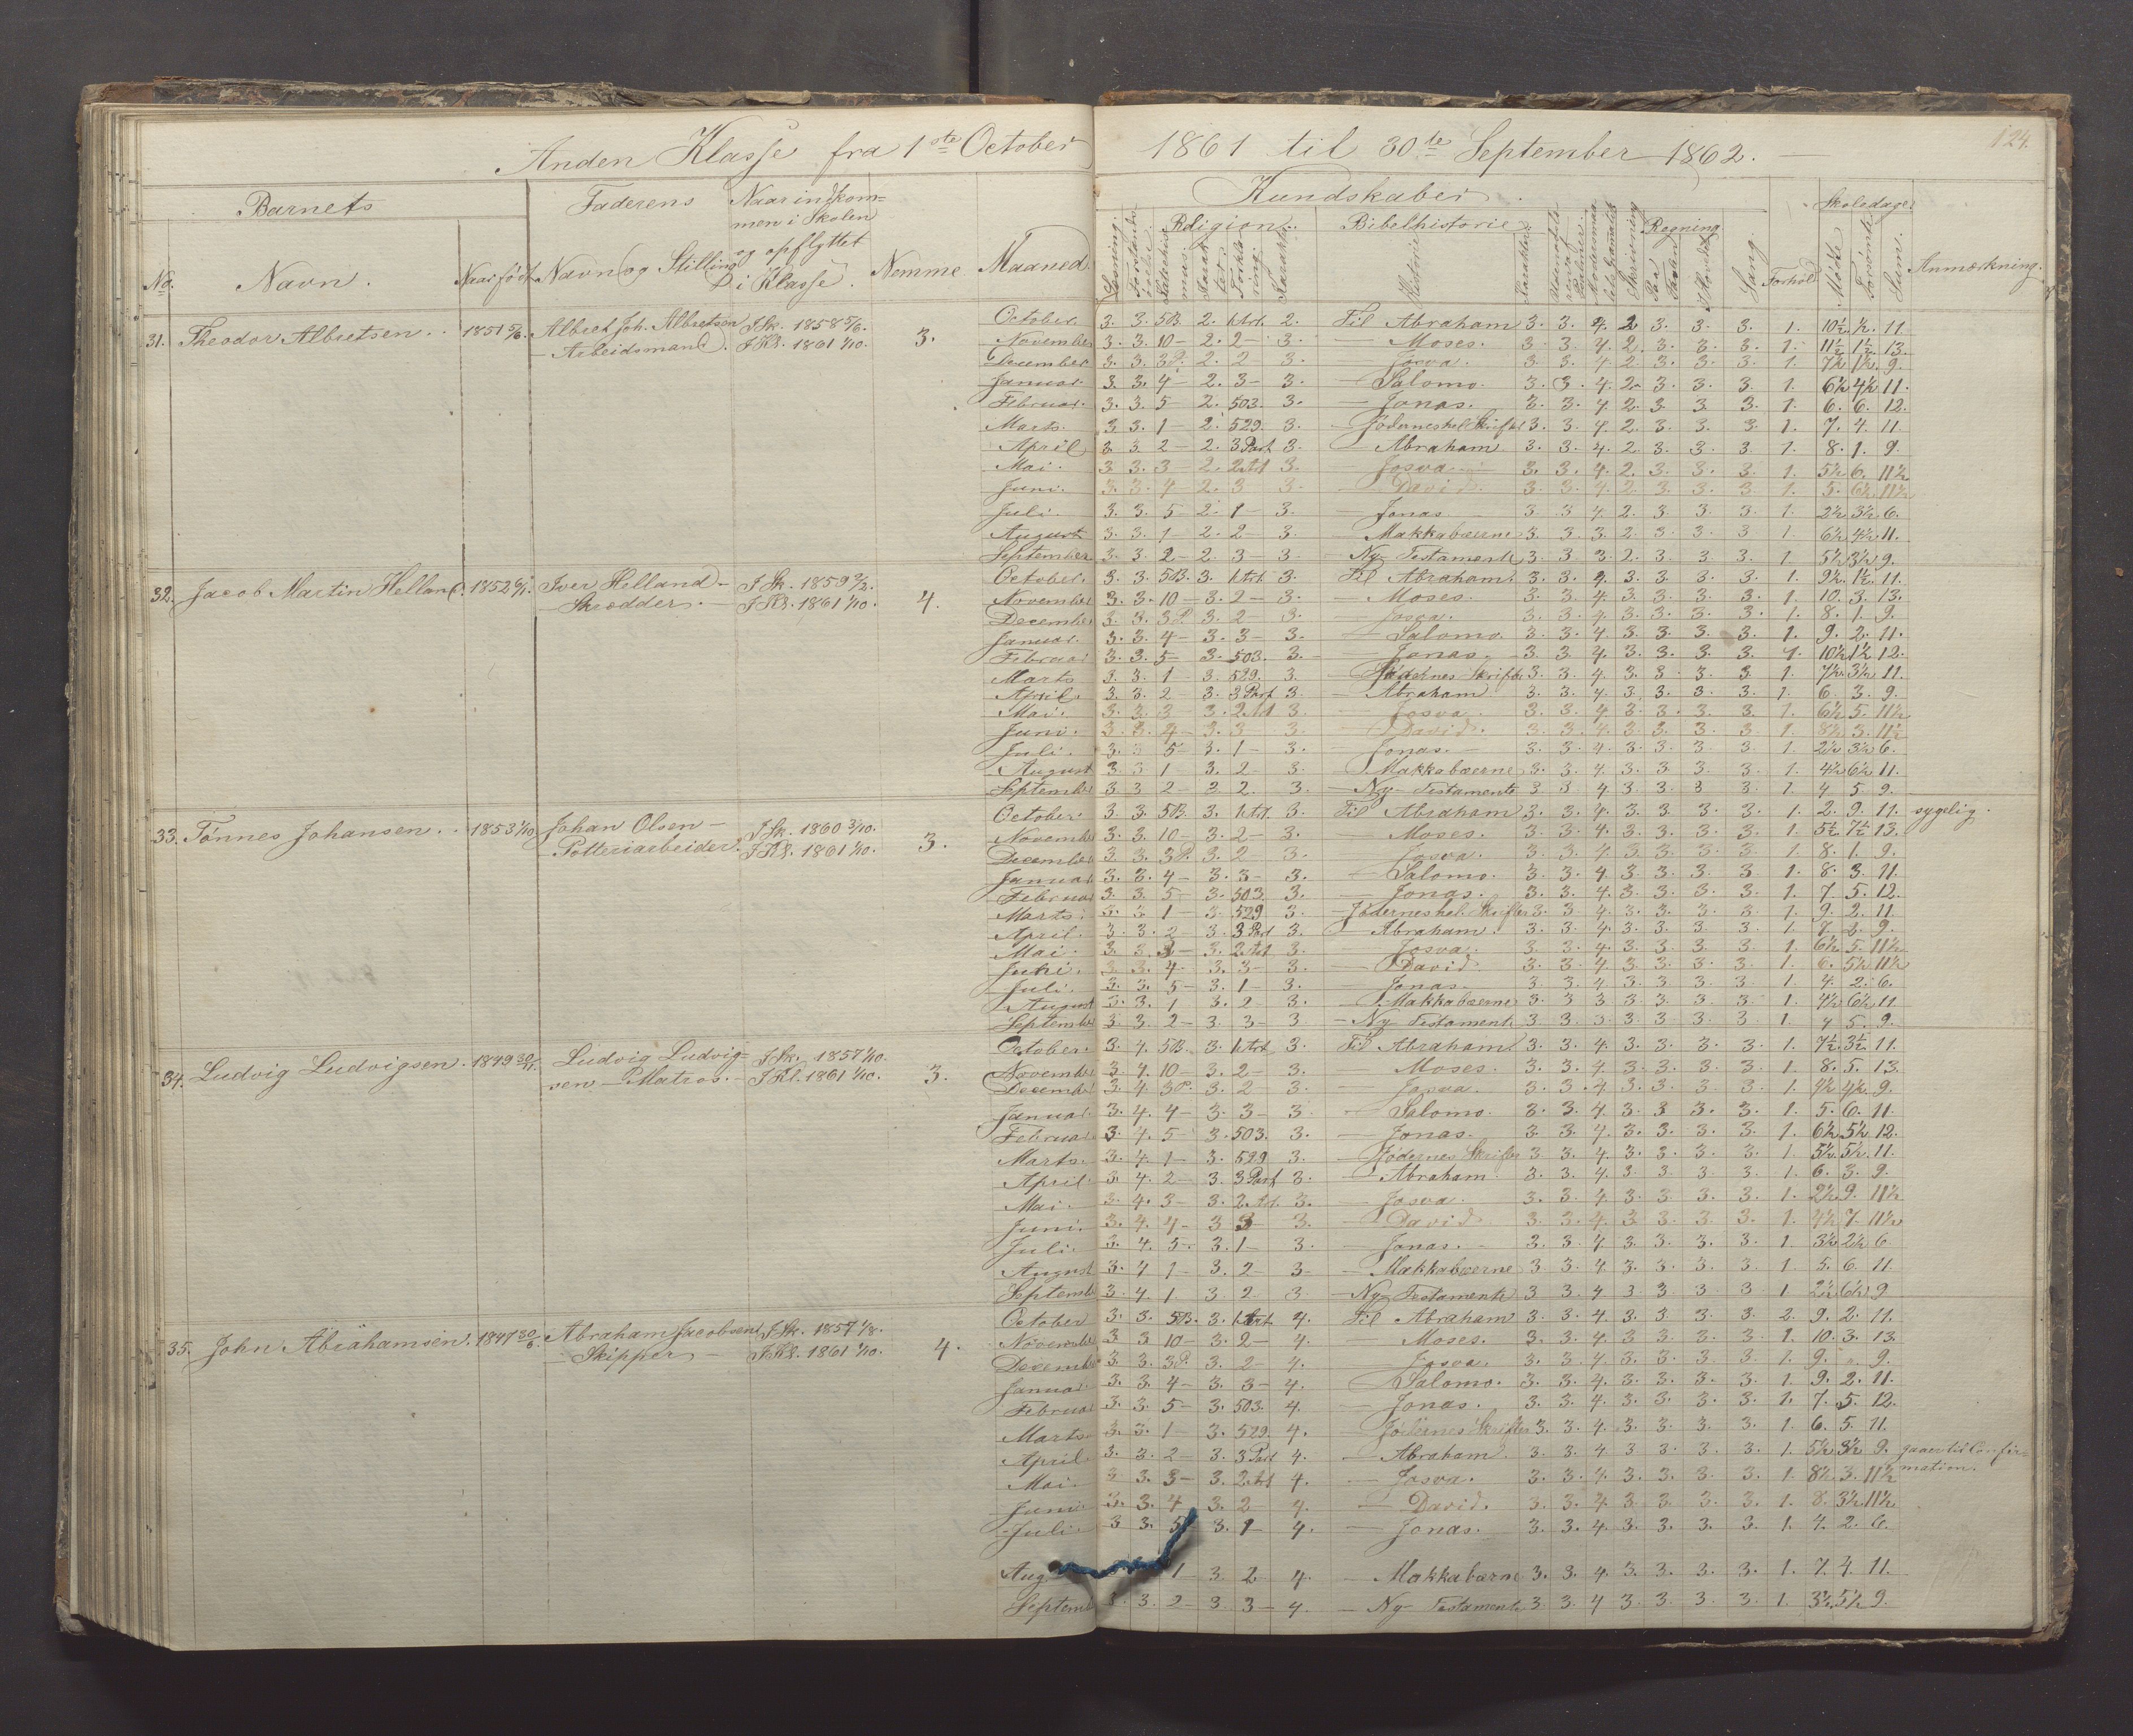 Anden Klasse fra 1ste October 1861 til 30te September 1862. —
124.
Barnets
Faderens
Naar indkom-
men i Skolen
og opflyttet
i Klasse.
Kundskaber.
Skoledage
No. Navn. Naar født Navn og Stilling Nemme Maaned.
Læsning. Religion. Bibelhistorie Skrivning Regning Sang. Forhold Mødte Forsømte Sum. Anmærkning.
31. Theodor Albretsen. 1851 5/6. Albret Joh. Albretsen J Sk. 1858 5/6. 3.
— Arbeidsmand. J Kl. 1861 1/10.
October. 3. 3. 5B. 2. 1 Art. 2. Til Abraham 3. 3. 4. 2. 3. 3. 3. 1. 10½. ½. 11.
November 3. 3. 10 — 2. 2 — 3. — Moses. 3. 3. 4. 2. 3. 3. 3. 1. 11½ 1½. 13.
December 3. 3. 3P. 2. 2 3. — Josva. 3. 3. 4. 2. 3. 3. 3. 1. 7½ 1½. 9.
Januar. 3. 3. 4 — 2. 3 — 3. — Salomo. 3. 3. 4. 2. 3. 3. 3. 1. 6½ 4½ 11.
Februar. 3. 3. 5 — 2. 503. 3. — Jonas. 3. 3. 4. 2. 3. 3. 3. 1. 6. 6. 12.
Marts. 3. 3. 1 — 2. 529. 3. — Jødernes hel. Skrifter 3. 3. 4. 2. 3. 3. 3. 1. 7. 4. 11.
April 3. 3. 2 — 2. 3 Part 3. — Abraham. 3. 3. 4. 2. 3. 3. 3. 1. 8. 1. 9.
Mai. 3. 3. 3 — 2. 2 Art 3. — Josva. 3. 3. 4. 2. 3. 3. 3. 1. 5½. 6. 11½
Juni. 3. 3. 4 — 2. 3 3. — David. 3. 3. 4. 2. 3. 3. 3. 1. 5. 6½. 11½
Juli. 3. 3. 5 — 2. 1 — 3. — Jonas. 3. 3. 4. 2. 3. 3. 3. 1. 2½ 3½ 6.
August 3. 3. 1 — 2. 2 — 3. — Makkabæerne 3. 3. 3. 2. 3. 3. 3. 1. 6½ 4½ 11.
September 3. 3. 2 — 2. 3 — 3. — Ny Testamente 3. 3. 3. 2. 3. 3. 3. 1. 5½ 3½ 9.
32. Jacob Martin Helland. 1852 Iver Helland — J Sk. 1859 4.
— Skrædder. — J Kl. 1861 1/10.
October. 3. 3. 5B. 3. 1 Art. 3. Til Abraham. 3. 3. 4. 3. 3. 3. 3. 1. 9½. 1½. 11.
November 3. 3. 10 — 3. 2 — 3. — Moses. 3. 3. 4. 3. 3. 3. 3. 1. 10. 3. 13.
December 3. 3. 3P. 3. 2 3. — Josva. 3. 3. 4. 3. 3. 3. 3. 1. 8. 1. 9.
Januar. 3. 3. 4 — 3. 3 — 3. — Salomo. 3. 3. 4. 3. 3. 3. 3. 1. 9. 2. 11.
Februar 3. 3. 5 — 3. 503. 3. — Jonas. 3. 3. 4. 3. 3. 3. 3. 1. 10½ 1½ 12.
Marts 3. 3. 1 — 3. 529. 3. — Jødernes Skrifter 3. 3. 4. 3. 3. 3. 3. 1. 7½ 3½ 11.
April. 3. 3. 2 — 3. 3 Part 3. — Abraham 3. 3. 4. 3. 3. 3. 3. 1. 6. 3. 9.
Mai. 3. 3. 3 — 3. 2 Art 3. — Josva. 3. 3. 4. 3. 3. 3. 3. 1. 6½ 5. 11½
Juni. 3. 3. 4 — 3. 3 3. — David. 3. 3. 4. 3. 3. 3. 3. 1. 8½ 3. 11½
Juli. 3. 3 5 — 3. 1 — 3. — Jonas. — 3. 3. 4. 3. 3. 3. 3 1. 2½ 3½ 6.
August 3. 3 1 — 3. 2 — 3. — Makkabæerne 3. 3. 4. 3. 3. 3. 3. 1. 4½ 6½ 11.
September 3 3 2 — 3 2. 3. — Ny Testamente 3 3 4 3 3 3 3 1. 4 5. 9.
33. Tønnes Johansen. 1853 1/10. Johan Olsen — J Sk. 1860 3/10. 3.
— Potteriarbeider. J Kl. 1861 1/10.
October. 3 3. 5B. 3. 1 Art. 3. Til Abraham 3. 3. 4. 3. 3. 3. 3. 1. 2. 9. 11. sygelig.
November 3. 3. 10 — 3. 2 — 3. — Moses. 3. 3. 4. 3. 3. 3. 3. 1. 5½ 7½ 13.
December 3. 3. 3P. 3. 2 — 3. — Josva. 3. 3. 4. 3. 3. 3. 3. 1. 8. 1. 9.
Januar 3. 3. 4 — 3. 3 — 3. — Salomo. 3. 3. 4. 3. 3. 3. 3. 1. 8. 3. 11.
Februar 3. 3. 5 — 3. 503. 3. — Jonas. 3. 3. 4. 3. 3. 3. 3. 1. 7. 5. 12.
Marts. 3. 3 1 — 3. 529 3. — Jødernes hel. Skrifter 3. 3. 4. 3. 3. 3. 3. 1. 9. 2. 11.
April. 3. 3. 2 — 3. 3 Part 3. — Abraham. 3. 3. 4. 3. 3. 3. 3. 1. 7. 2. 9.
Mai. 3. 3. 3 — 3. 2 Art 3. — Josva. 3. 3. 4. 3. 3. 3. 3. 1. 6½ 5. 11½
Juni. 3. 3. 4 — 3. 3 — 3. — David. 3. 3. 4. 3. 3. 3. 3. 1. 6. 5½ 11½
Juli. 3. 3. 5 — 3. 1 — 3. — Jonas. 3. 3. 4 3. 3. 3. 3 1. 4. 2. 6.
August 3. 3. 1 3. 2 — 3. — Makkabæerne 3. 3 3 3. 3. 3. 3. 1. 4½ 6½ 11.
September 3. 3. 2 — 3. 3 — 3 — Ny Testamente 3. 3. 3. 3 3. 3. 3 1. 4 5. 9.
34. Ludvig Ludvigsen. 1849 Ludvig Ludvig= J Sk. 1857 1/10. 3.
sen — Matros. — J Kl. 1861 1/10.
October. 3. 4. 5B. 3. 1 Art. 3. Til Abraham. 3. 3. 4. 3. 3. 3. 3. 1. 7½. 3½. 11.
November 3. 4. 10 — 3. 2 — 3. Moses. 3. 3. 4. 3. 3. 3. 3. 1. 8. 5. 13.
December 3. 4. 3P. 3. 2 — 3. — Josva. 3. 3. 4. 3. 3. 3. 3. 1. 4½ 4½ 9.
Januar. 3. 4. 4 — 3. 3 — 3. — Salomo. 3. 3. 4. 3. 3 3. 3. 1. 5. 6. 11.
Februar 3. 4. 5 — 3. 503. 3. — Jonas. 3. 3. 4. 3. 3. 3. 3. 1. 6½ 5½ 12.
Marts. 3. 4. 1 — 3. 529 3. — Jødernes Skrifter 3. 3. 4. 3. 3. 3. 3. 1. 5½. 5½. 11.
April. 3. 4. 2 — 3. 3 Part 3. — Abraham. 3. 3. 4. 3. 3. 3. 3. 1. 6. 3. 9.
Mai. 3. 4. 3 — 3. 2. Art. 3. — Josva. 3. 3. 4. 3. 3. 3. 3. 1. 2½ 9. 11½
Juni. 3. 4. 4 — 3 3 3. — David. 3. 3. 4. 3. 3. 3. 3. 1. 4½ 7. 11½
Juli. 3. 4. 5 — 3. 1 — 3. — Jonas. — 3. 3. 4. 3. 3. 3. 3. 1. 3½ 2½ 6
August 3. 4 1 — 3. 2 — 3 — Makkabæerne 3 3. 4. 3. 3. 3. 3. 1. 5. 6. 11.
Septemb. 3. 4. 1. 3. 2. 3. — Ny Testamente 3 3. 4 3 3 3 3 1. 2½ 6½ 9
35. John Abrahamsen. 1847 30/6. Abraham Jacobsen J Sk. 1857 1/8. 4.
— Skipper — J Kl. 1861 1/10.
October 3. 3. 5B. 3. 1 Art. 4. Til Abraham 3. 3. 4. 3. 3. 3. 3. 2. 9. 2. 11.
November 3 3 10 — 3. 2 — 4. — Moses. 3. 3. 4. 3. 3. 3. 3. 1. 10. 3. 13.
December 3 3. 3P. 3. 2 — 4. — Josva. 3. 3. 4. 3. 3. 3. 3. 1. 9. „ 9.
Januar. 3. 3 4 — 3. 3 — 4. — Salomo. 3. 3. 4. 3. 3. 3. 3. 1. 9. 2. 11.
Februar 3. 3. 5 — 3. 503. 4. — Jonas. 3. 3. 4. 3. 3. 3. 3. 1. 7. 5. 12.
Marts 3. 3. 1 — 3. 529. 4. — Jødernes Skrifter 3. 3. 4. 3. 3. 3. 3. 1. 6. 5. 11.
April. 3. 3. 2 — 3. 3 Part 4. — Abraham. 3. 3. 4 3. 3. 3. 3. 1. 5½. 3½ 9. gaaer til Confir=
mation.
Mai. 3 3. 3 — 3. 2 Art 4. — Josva. 3. 3. 4. 3. 3. 3. 3. 1. 8½ 3. 11½
Juni. 3. 3. 4 3. 2 — 4. — David. 3. 3. 4. 3. 3. 3. 3. 1. 8. 3½ 11½
Juli. 3 3. 5 3. 1 — 4. — Jonas. 3. 3. 4. 3. 3. 3. 3. 1. 4. 2. 6.
Aug 1 3. 2 4. — Makkabæerne 3. 3. 4. 3. 3. 3. 3. 1. 7. 4. 11.
Septemb 3. 3. 2 — 3. 3 — 4. — Ny Testamente 3 3. 4 3. 3. 3. 3. 1. 3½. 5½ 9.